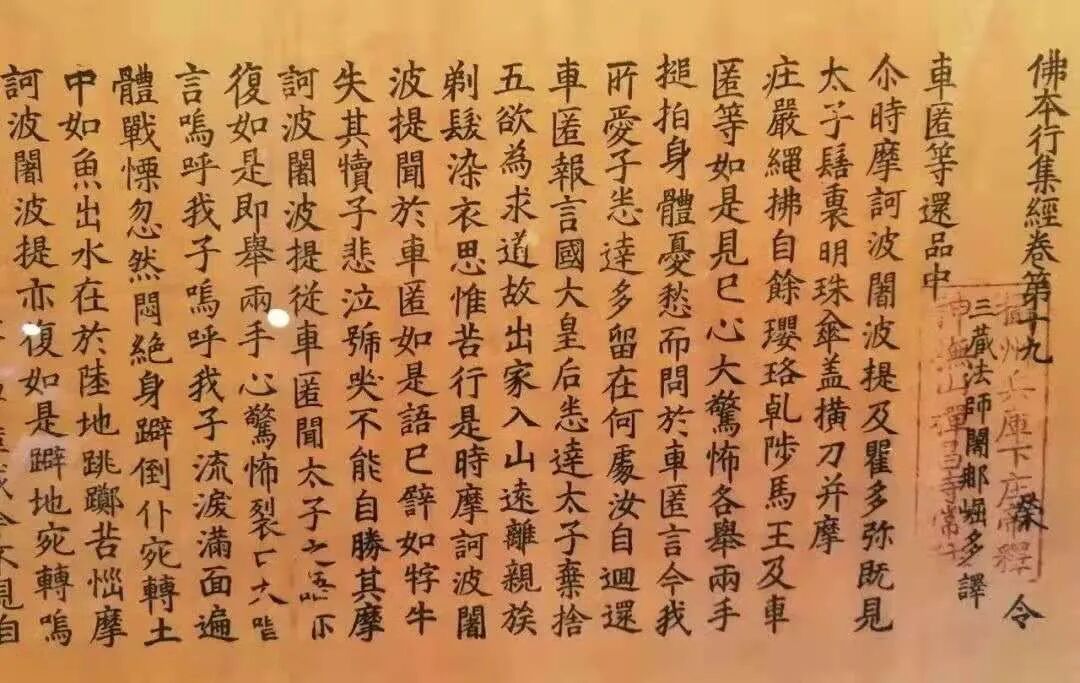 佛本行集經卷第十九 榮 令
三藏法師闍那崛多譯
車匿等還品中
尒時摩訶波闍波提及瞿多弥既見
太子髻裹明珠傘盖橫刀并摩
庄嚴繩拂自餘瓔珞乹陟馬王及車
匿等如是見已心大驚怖各舉兩手
搥拍身體憂愁而問於車匿言今我
所愛子悉達多留在何處汝自迴還
車匿報言國大皇后悉達太子棄捨
五欲為求道故出家入山遠離親族
剃髮染衣思惟苦行是時摩訶波闍
波提聞於車匿如是語已譬如牸牛
失其犢子悲泣號哭不能自勝其摩
訶波闍波提從車匿聞太子之
復如是即舉兩手心驚怖裂 大
言嗚呼我子嗚呼我子流淚滿面遍
體戰慄忽然悶絕身躃倒仆宛轉土
中如魚出水在於陸地跳躑苦惱摩
訶波闍波提亦復如是躃地宛轉嗚
見自
攝州兵庫下庄帝釋
神撫山禪昌寺常住